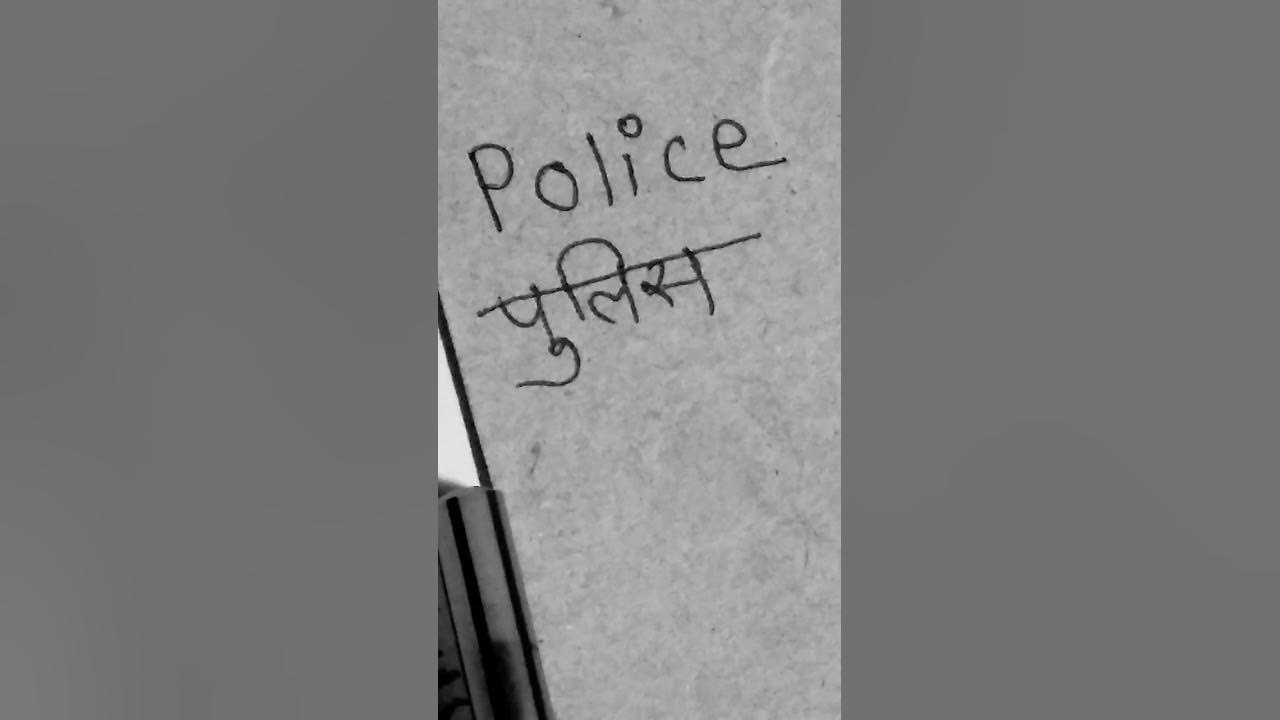 Police
पुलिस